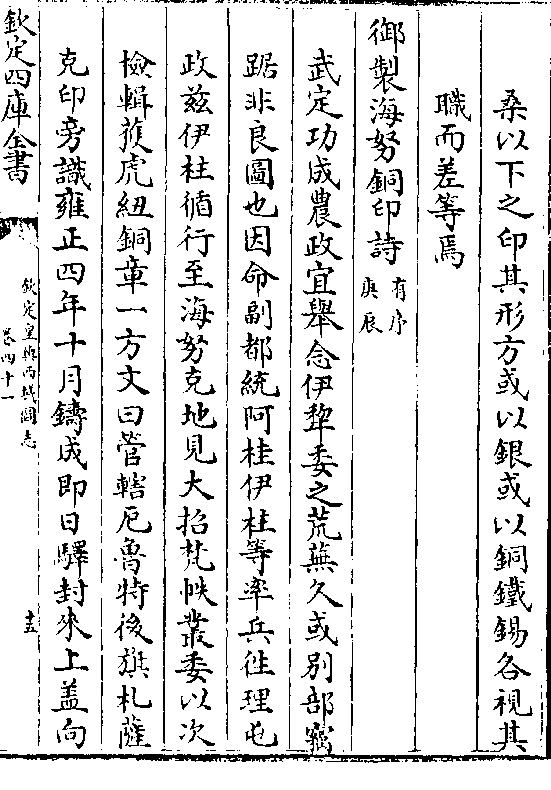 桑以下之印其形方或以銀或以銅鐵錫各視其
職而差等焉
御製海努銅印詩 有序 庚辰
武定功成農政宜舉念伊犂委之荒蕪久或別部竊
踞非良圖也因命副都統阿桂伊柱等率兵徃理屯
政兹伊柱循行至海努克地見大招梵帙叢委以次
檢輯𫉬虎紐銅章一方文曰管轄厄魯特後旗札薩
克印旁識雍正四年十月鑄成即日驛封來上盖向
欽定四庫全書
欽定皇輿西域圖志
卷四十一
十五